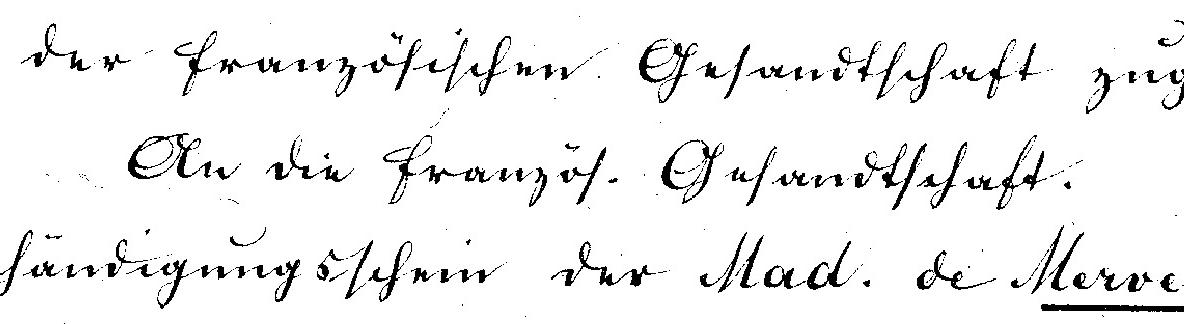 der französischen Gesandtschaft zug
An die französ. Gesandtschaft.
händigungsschein der Mad. de Merve